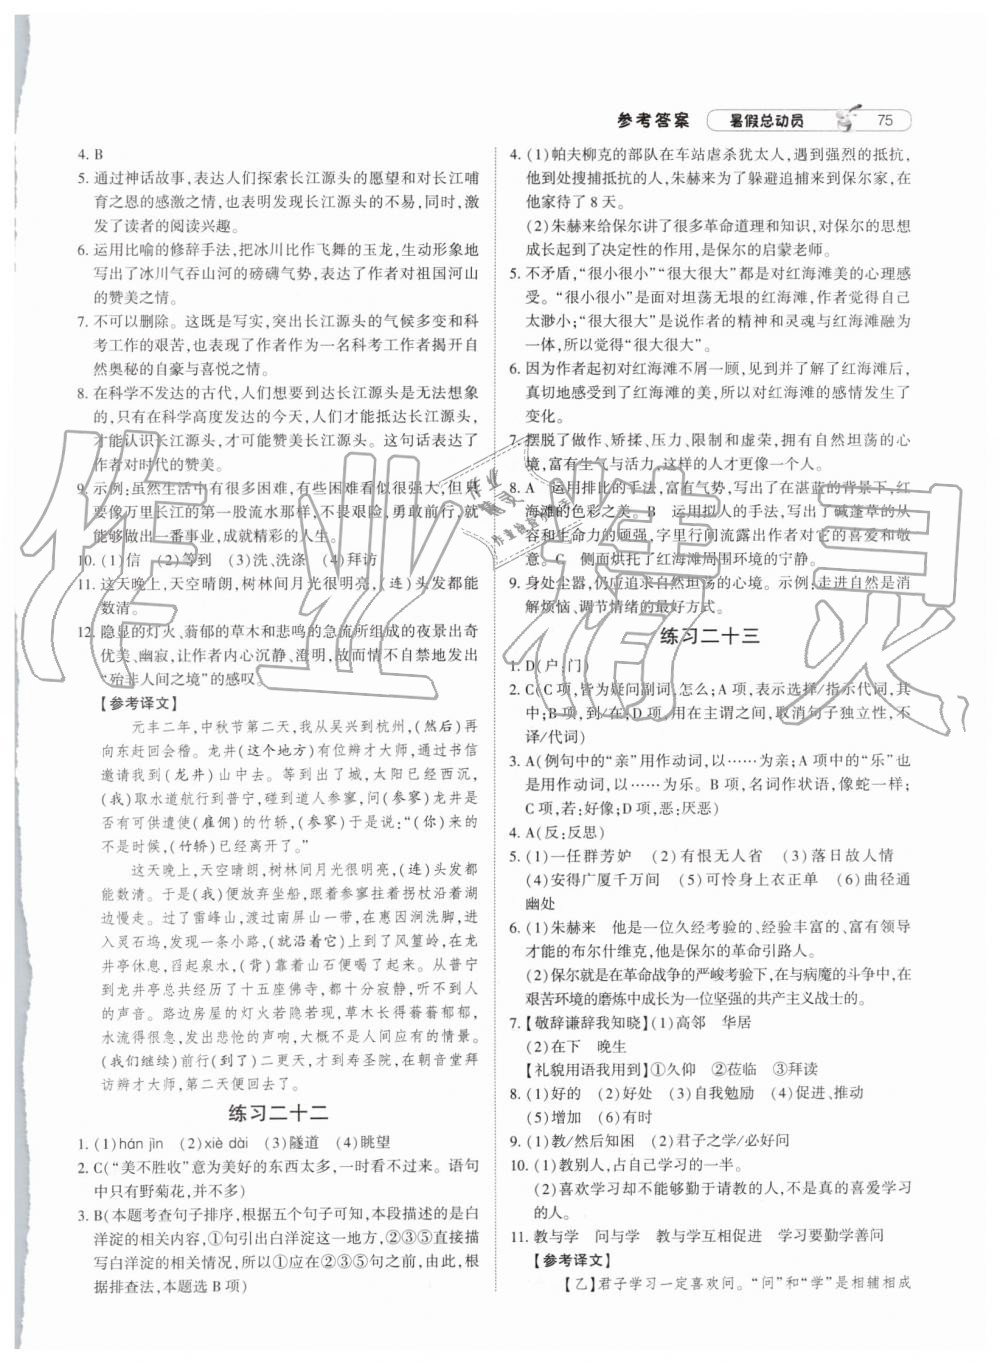 参考答案 暑假总动员 75
4. B
5. 通过神话故事,表达人们探索长江源头的愿望和对长江哺
育之恩的感激之情,也表明发现长江源头的不易,同时,激
发了读者的阅读兴趣。
6. 运用比喻的修辞手法,把冰川比作飞舞的玉龙,生动形象地
写出了冰川气吞山河的磅礴气势,表达了作者对祖国河山
的赞美之情。
7. 不可以删除。这既是写实,突出长江源头的气候多变和科
考工作的艰苦,也表达了作者作为一名科考工作者揭开自
然奥秘的自豪与喜悦之情。
8. 在科学不发达的古代,人们想要到达长江源头是无法想象
的,只有在科学高度发达的今天,人们才能抵达长江源头,
才能认识长江源头,才可能赞美长江源头。这句话表达了
作者对时代的赞美。
9. 示例:虽然生活中有很多困难,有些困难还很强大,但只
要像万里长江的第一股流水那样,不畏艰险,奋勇向前,就
能够做出一番事业,成就精彩的人生。
10. (1)信 (2)等到 (3)洗、洗涤 (4)拜访
11. 这天晚上,天空晴朗,树林间月光很明亮,(连)头发都能
数清。
12. 隐显的灯火、蓊郁的草木和悲鸣的急流所组成的夜景出奇
优美、幽寂,让作者内心沉静、澄明,故而情不自禁地发出
“殆非人间之境”的感叹。
【参考译文】
元丰二年,中秋节第二天,我从吴兴到杭州,(然后)再
向东赶回会稽。龙井(这个地方)有位辨才大师,通过书信
邀请我到(龙井)山中去。等到出了城,太阳已经西沉,
(我)取水道航行到普宁,碰到道人参寥,问(参寥)龙井是
否有可供遣使(雇佣)的竹轿,(参寥)于是说:“(你)来的
不是时候,(竹轿)已经离开了。”
这天晚上,天空晴朗,树林间月光很明亮,(连)头发都
能数清。于是(我)便放弃坐船,跟着参寥拄着拐杖沿着湖
边慢走。过了雷峰山,渡过南屏山一带,在惠因涧洗脚,进
入灵石坞,发现一条小路,(就沿着它)上到了风篁岭,在龙
井亭休息,舀起泉水,(背)靠着山石便喝了起来。从普宁
到龙井亭总共经历了十五座佛寺,都十分寂静,听不到人
的声音。路边房屋的灯火若隐若现,草木长得蓊蓊郁郁,
水流得很急,发出悲怆的声响,大概不是人间应有的情景。
(我们继续)前行(到了)二更天,才到寿圣院,在朝音堂拜
访辨才大师,第二天便回去了。
练习二十二
1. (1)hán jìn (2)xiè dài (3)隧道 (4)眺望
2. C(“美不胜收”意为美好的东西太多,一时看不过来。语句
中只有野菊花,并不多)
3. B(本题考查句子排序,根据五个句子可知,本段描述的是白
洋淀的相关内容,①句引出白洋淀这一地方,②③⑤句具体
描写白洋淀的相关情况,所以①应在②③⑤句之前,由此,根
据排查法,本题选 B 项)
4. (1)帕夫柳克的部队在车站虐杀犹太人,遇到强烈的抵抗,
他到处搜捕抵抗的人,朱赫来为了躲避追捕来到保尔家,在
他家待了 8 天。
(2)朱赫来给保尔讲了很多革命道理和知识,对保尔的思想
成长起到了决定性的作用,是保尔的启蒙老师。
5. 不矛盾,“很小很小”“很大很大”都是对红海滩美的心理感
受。“很小很小”是面对坦荡无垠的红海滩,作者觉得自己
太渺小;“很大很大”是说作者的精神和灵魂与红海滩融为
一体,所以觉得“很大很大”。
6. 因为作者起初对红海滩不屑一顾,见到并了解了红海滩后,
真切地感受到了红海滩的美,所以对红海滩的感情发生了
变化。
7. 摆脱了做作、矫揉、压力、限制和虚荣,拥有自然坦荡的心
境,富有生气与活力,这样的人才更像一个人。
8. A 运用排比的手法,富有气势,写出了在湛蓝的背景下,红
海滩的色彩之美。B 运用拟人的手法,写出了碱蓬草的
生命力的顽强,字里行间流露出作者对它的喜爱和赞美之
情。C 侧面烘托了红海滩周围环境的宁静。
9. 身处尘嚣,仍应追求自然坦荡的心境。示例:走进自然是消
解烦恼、调节情绪的最好方式。
练习二十三
1. D(户:门)
2. C(C 项,皆为疑问副词,怎么;A 项,表示选择/指示代词,其
中;B 项,到/在;D 项,用在主谓之间,取消句子独立性,不
译/代词)
3. A(例句中的“亲”用作动词,以……为亲;A 项中的“乐”也
是用作动词,以……为乐。B 项,名词作状语,像蛇一样;
C 项,若:好像;D 项,恶:厌恶)
4. A(反:反思)
5. (1)一任群芳妒 (2)有恨无人省 (3)落日故人情
(4)安得广厦千万间 (5)可怜身上衣正单 (6)曲径通
幽处
6. (1)朱赫来 他是一位久经考验的、经验丰富的、富有领导
才能的布尔什维克,他是保尔的革命引路人。
(2)保尔就是在革命战争的严峻考验下,在与病魔的斗争中,在
艰苦环境的磨炼中成长为一位坚强的共产主义战士的。
7. 【敬辞谦辞我知晓】(1)高邻 华居
(2)在下 晚生
【礼貌用语我用到】①久仰 ②莅临 ③拜读
8. (1)好的 (2)好处 (3)自我勉励 (4)促进、推动
(5)增加 (6)有时
9. (1)教/然后知困 (2)君子之学/必好问
10. (1)教别人,占自己学习的一半。
(2)喜欢学习却不能够勤于请教的人,不是真的喜爱学习
的人。
11. 教与学 问与学 教与学互相促进 学习要勤学善问
【参考译文】
【乙】君子学习一定喜欢问。“问”和“学”是相辅相成